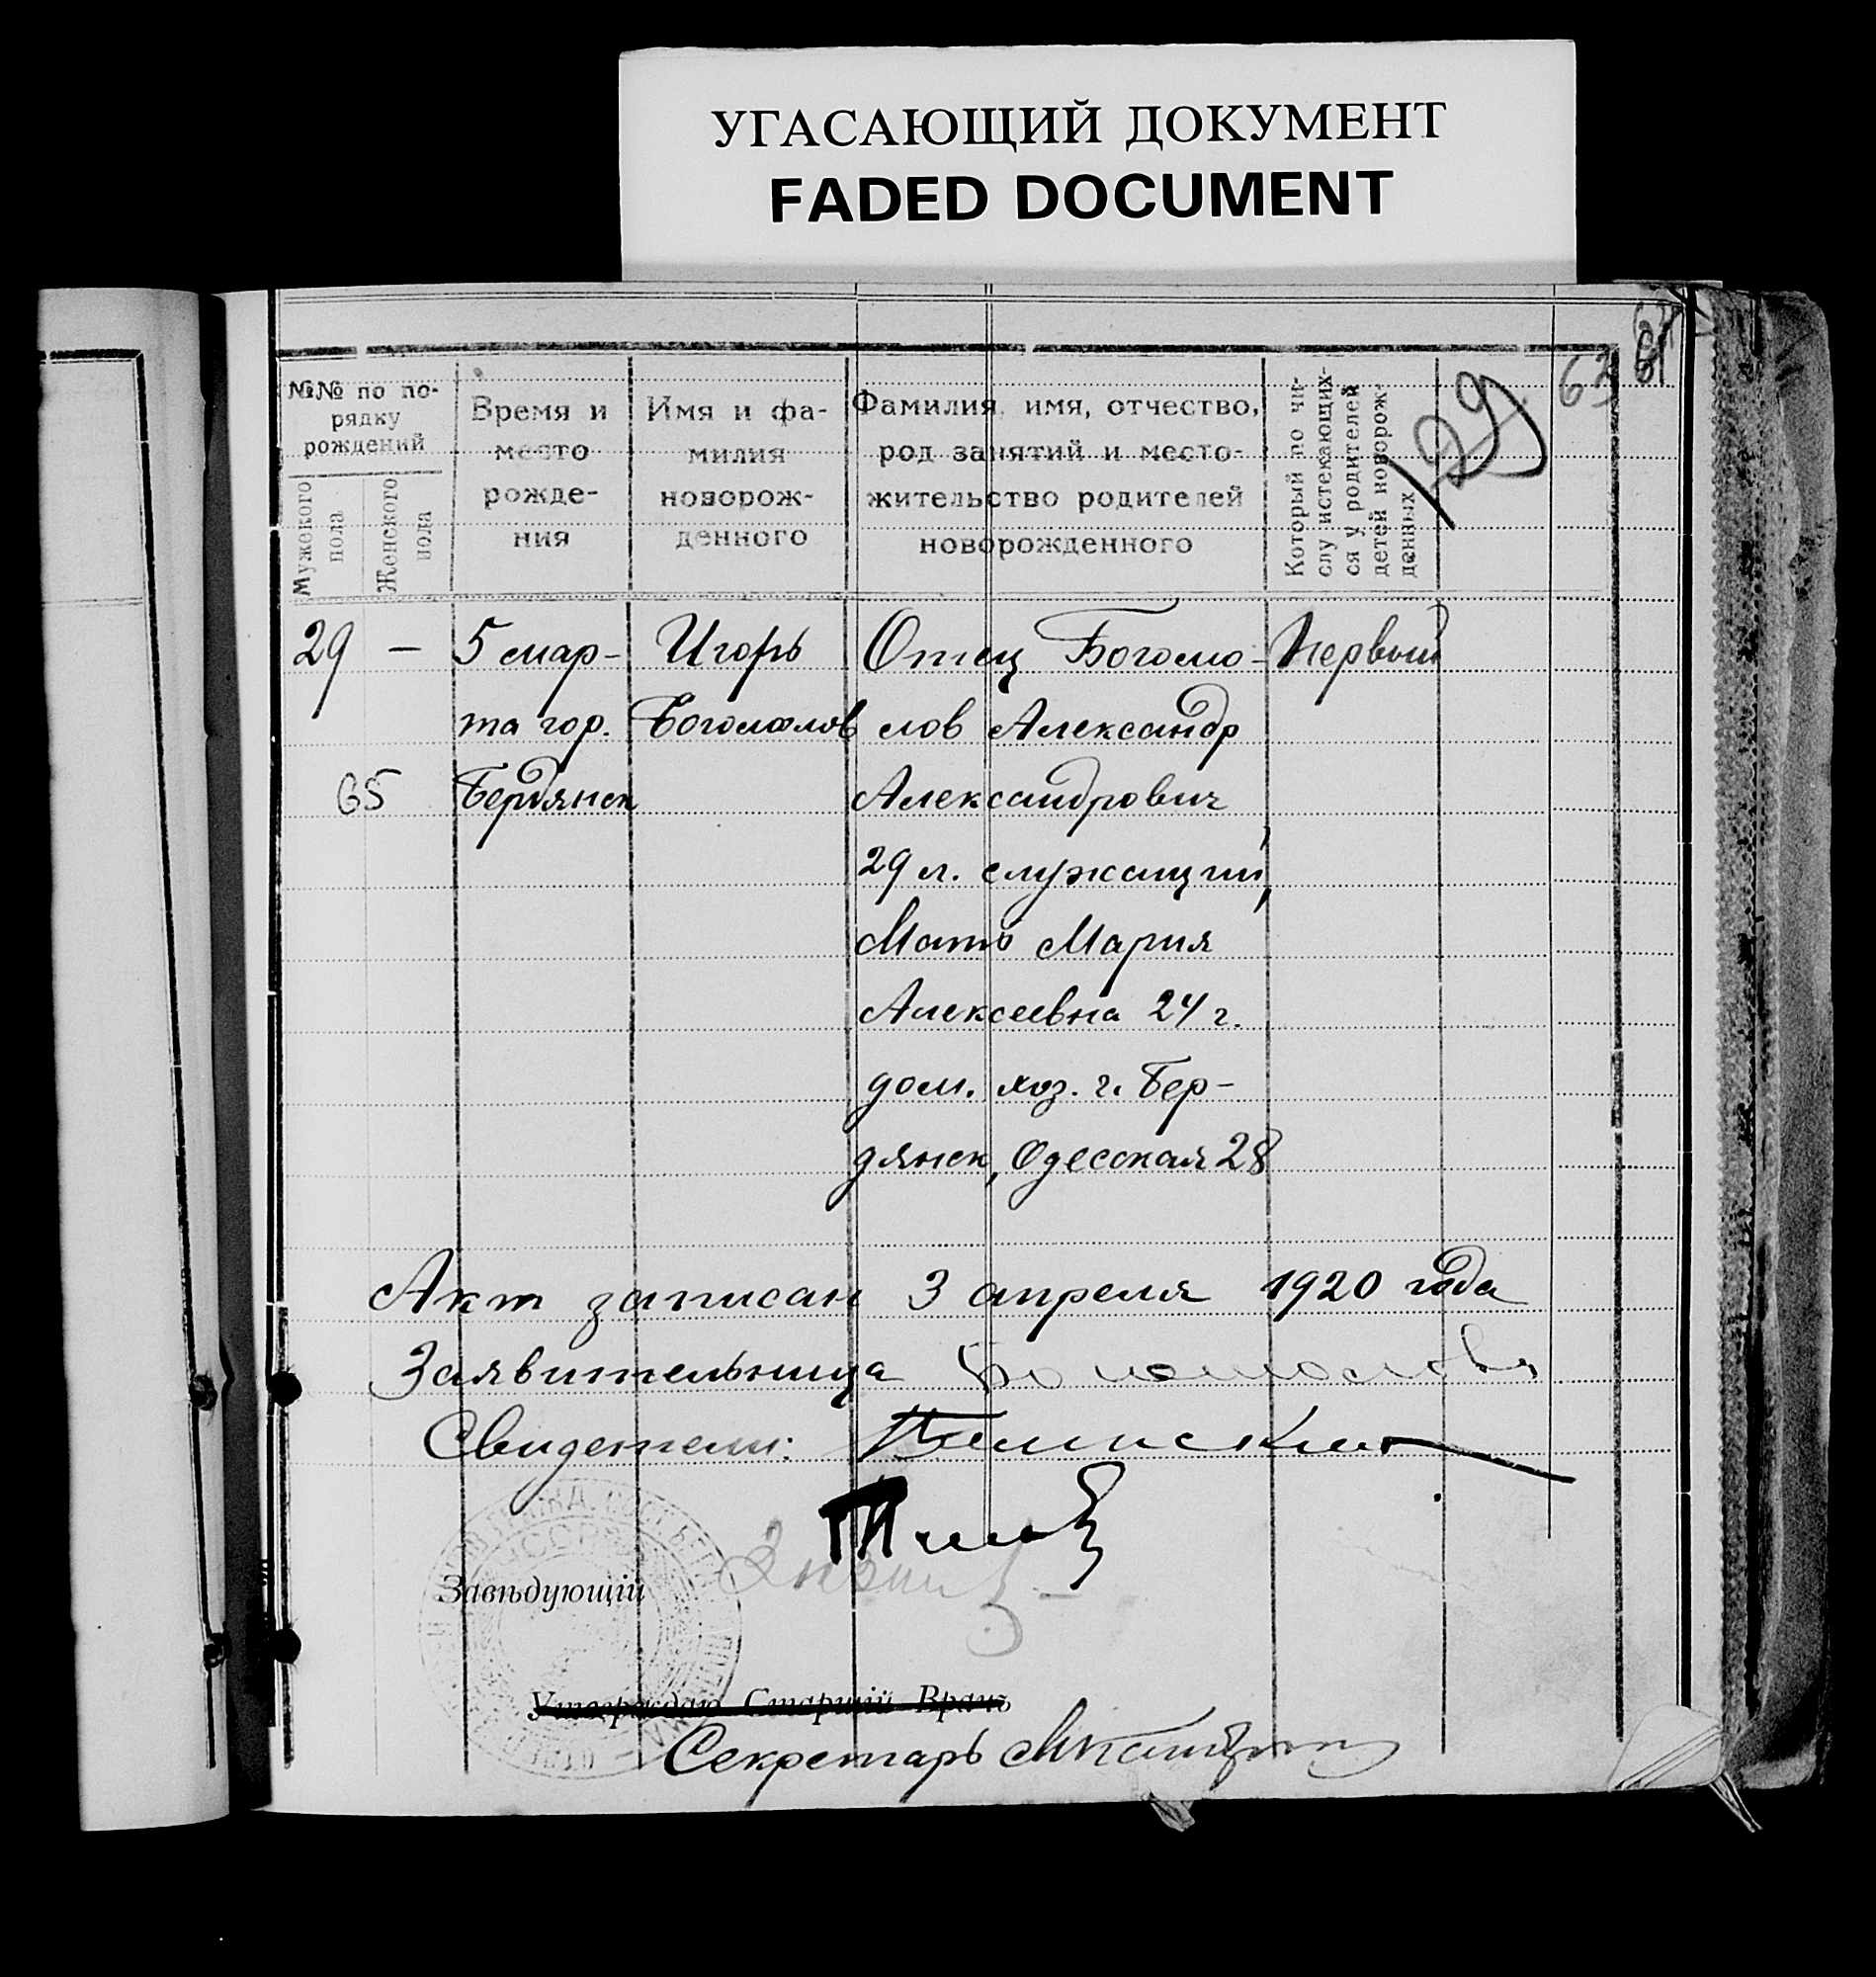 УГАСАЮЩИЙ ДОКУМЕНТ
FADED DOCUMENT
63
129
№№ по по-
рядку
рождений
Мужеского
пола
Женского
пола
Время и
место
рожде-
ния
Имя и фа-
милия
новорож-
денного
Фамилия, имя, отчество,
род занятий и место-
жительство родителей
новорожденного
Который по чи-
слу истекающих-
ся у родителей
детей новорож-
денных
29 — 5 мар- Игорь Отец Богомо- Первый
та гор. Богомолов лов Александр
65 Бердянск Александрович
29 л. служащий,
Мать Мария
Алексеевна 24 г.
дом. хоз. г. Бер-
дянск, Одесская 28
Акт записан 3 апреля 1920 года
Заявительница Богомолова
Свидетели:
Завѣдующій
Утверждаю Старшій Врачъ
Секретарь